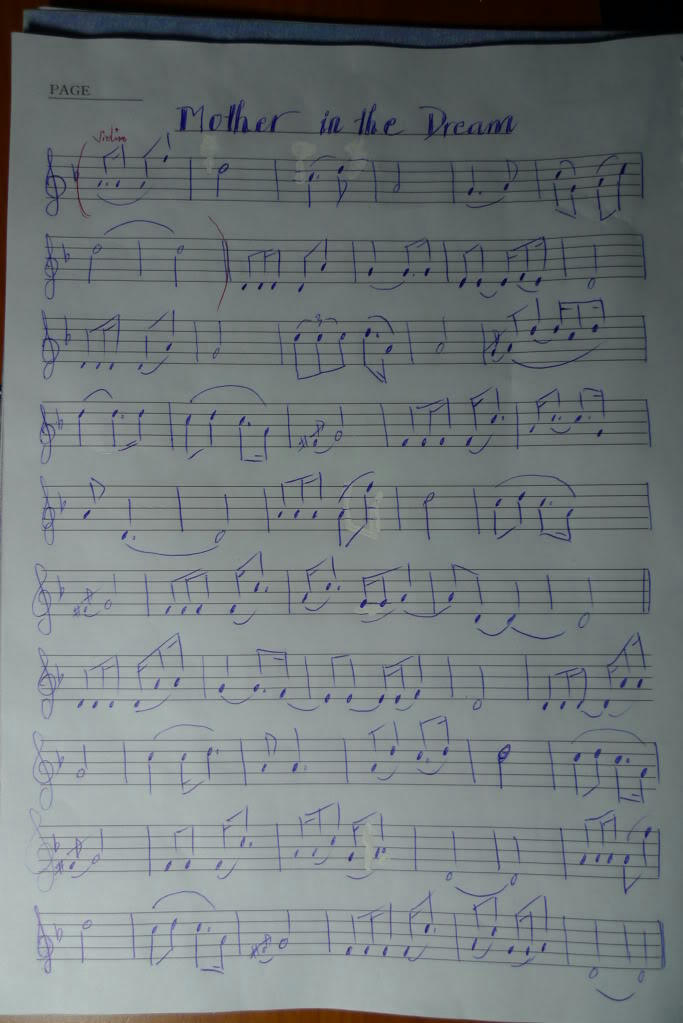 PAGE
Mother in the Dream
violin
3